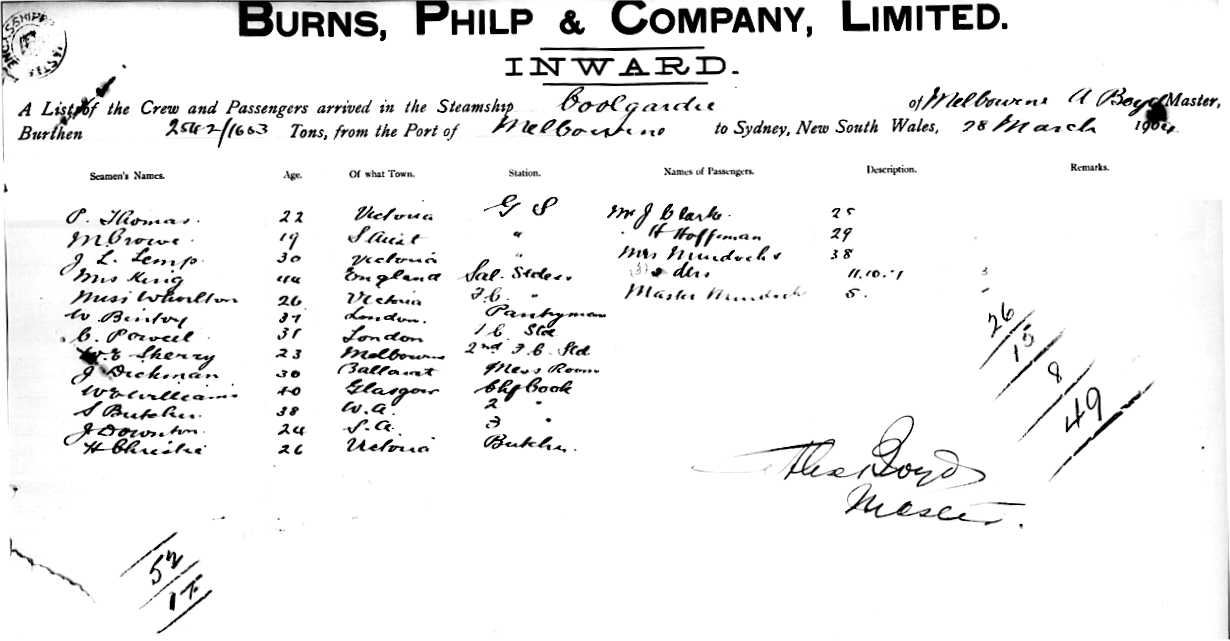 BURNS, PHILP & COMPANY, LIMITED.
INWARD.
A List of the Crew and Passengers arrived in the Steamship Coolgardie of Melbourne A Boyd Master,
Burthen 2542/1663 Tons, from the Port of Melbourne to Sydney, New South Wales, 28 March 1904
Seamen's Names. Age. Of what Town. Station. Names of Passengers. Description. Remarks.
P. Thomas. 22 Victoria G S Mr J Clarke. 25
M Crowe. 19 S Aust " " H Hoffman 29
J L. Lemp. 30 Victoria " Mrs Murdochs 38
Mrs King 44 England Sal. Stdess 3 s drs 11.10.
Miss Whorlton 26 Victoria F.C. " Master Murdoch 5.
W Bintoy 37 London. Pantryman
C. Powell 31 London 1 C. Std
W.E Sherry 23 Melbourne 2nd F C. Std
J Dickman 30 Ballarat Mess Room
W Williams 40 Glasgow Chf Cook
S Butcher 38 W.A. 2 "
J Downton. 24 S.A. 3 "
H Christie 26 Victoria Butcher.
26
15
8
49
Alex Boyd
Master.
52
17